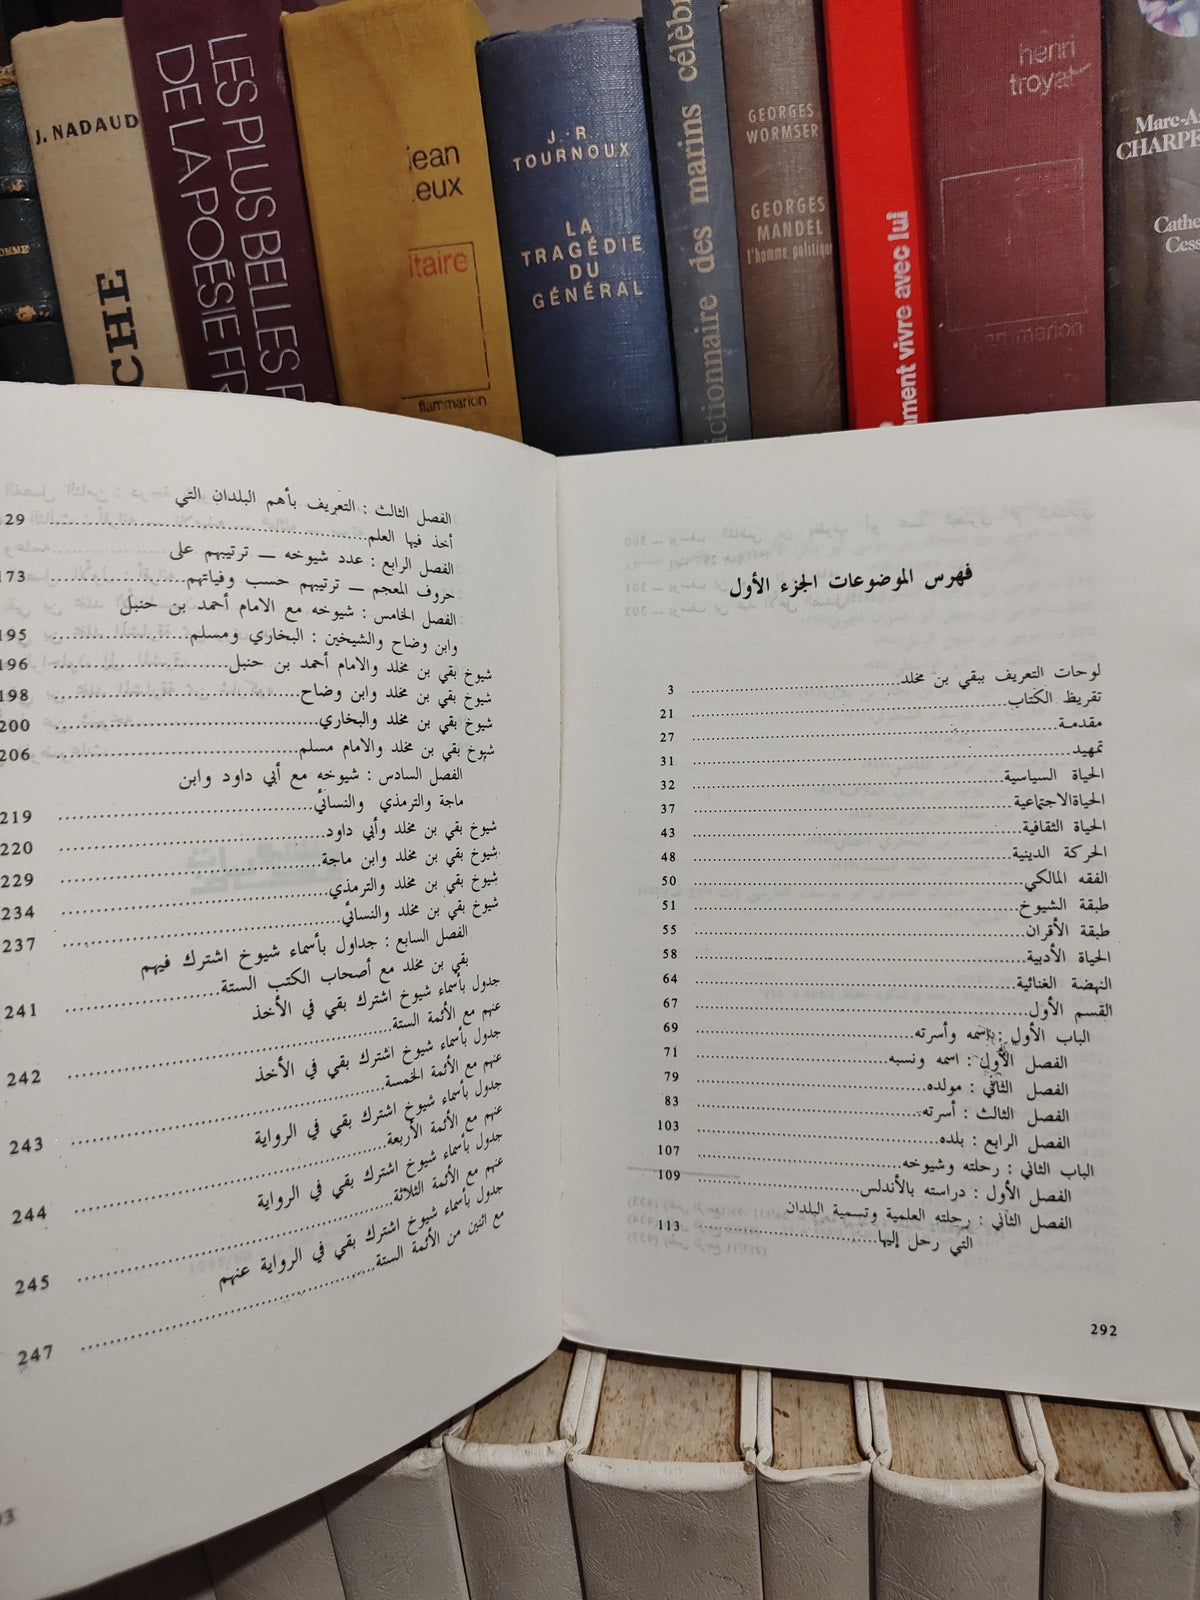 J. NADAUD
CHE
LES PLUS BELLES
DE LA POÉSIE FR
jean
eux
ltaire
flammarion
J.-R.
TOURNOUX
LA
TRAGÉDIE
DU
GÉNÉRAL
ictionnaire des marins célèbr
GEORGES
WORMSER
GEORGES
MANDEL
l'homme politique
ment vivre avec lui
henri
troyat
flammarion
Marc-A
CHARPE
Cathe
Cess
فهرس الموضوعات الجزء الأول
لوحات التعريف ببقي بن مخلد 3
تقريظ الكتاب 21
مقدمة 27
تمهيد 31
الحياة السياسية 32
الحياةالاجتماعية 37
الحياة الثقافية 43
الحركة الدينية 48
الفقه المالكي 50
طبقة الشيوخ 51
طبقة الأقران 55
الحياة الأدبية 58
النهضة الغنائية 64
القسم الأول 67
الباب الأول : اسمه وأسرته 69
الفصل الأول : اسمه ونسبه 71
الفصل الثاني : مولده 79
الفصل الثالث : أسرته 83
الفصل الرابع : بلده 103
الباب الثاني : رحلته وشيوخه 107
الفصل الأول : دراسته بالأندلس 109
الفصل الثاني : رحلته العلمية وتسمية البلدان
التي رحل إليها 113
292
الفصل الثالث : التعريف بأهم البلدان التي
أخذ فيها العلم 29
الفصل الرابع : عدد شيوخه — ترتيبهم على
حروف المعجم — ترتيبهم حسب وفياتهم 173
الفصل الخامس : شيوخه مع الامام أحمد بن حنبل
وابن وضاح والشيخين : البخاري ومسلم 195
شيوخ بقي بن مخلد والامام أحمد بن حنبل 196
شيوخ بقي بن مخلد وابن وضاح 198
شيوخ بقي بن مخلد والبخاري 200
شيوخ بقي بن مخلد والامام مسلم 206
الفصل السادس : شيوخه مع أبي داود وابن
ماجة والترمذي والنسائي 219
شيوخ بقي بن مخلد وأبي داود 220
شيوخ بقي بن مخلد وابن ماجة 229
شيوخ بقي بن مخلد والترمذي 234
شيوخ بقي بن مخلد والنسائي 237
الفصل السابع : جداول بأسماء شيوخ اشترك فيهم
بقي بن مخلد مع أصحاب الكتب الستة 241
جدول بأسماء شيوخ اشترك بقي في الأخذ
عنهم مع الأئمة الستة 242
جدول بأسماء شيوخ اشترك بقي في الأخذ
عنهم مع الأئمة الخمسة 243
جدول بأسماء شيوخ اشترك بقي في الرواية
عنهم مع الأئمة الأربعة 244
جدول بأسماء شيوخ اشترك بقي في الرواية
عنهم مع الأئمة الثلاثة 245
جدول بأسماء شيوخ اشترك بقي في الرواية عنهم
مع اثنين من الأئمة الستة 247